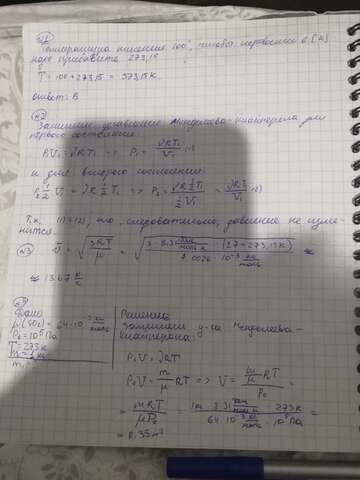 №1
Температура кипения 100°, чтобы перевести в [K]
надо прибавить 273,15
T = 100 + 273,15 = 373,15 K.
ответ: В
№2
Запишем уравнение Менделеева-Клапейрона для
первого состояния:
P₁V₁ = νRT₁ => P₁ = νRT₁/V₁ (1)
и для второго состояния:
P₂ ½ V₁ = νR ½ T₁ => P₂ = νR ½ T₁ / ½ V₁ = νRT₁/V₁ (2)
Т.к. (1) = (2), то, следовательно, давление не изме-
нится.
№3 v̄ = √(3RT/μ) = √(3 · 8,31 Дж/моль·К · (27 + 273,15)K /
≈ 13,67 м/с
Дано
μ(SO₂) = 64·10⁻³ кг/моль
P₀ = 10⁵ Па
T = 273 K
Решение
Запишем у-ие Менделеева-
Клапейрона:
P₀V = νRT
P₀V = m/μ RT => V = (m/μ RT)/P₀ =
= mRT/μP₀ = 1кг · 8,31 Дж/моль·К · 273K / 64·10⁻³ кг/моль · 10⁵ Па =
= 0,35 м³